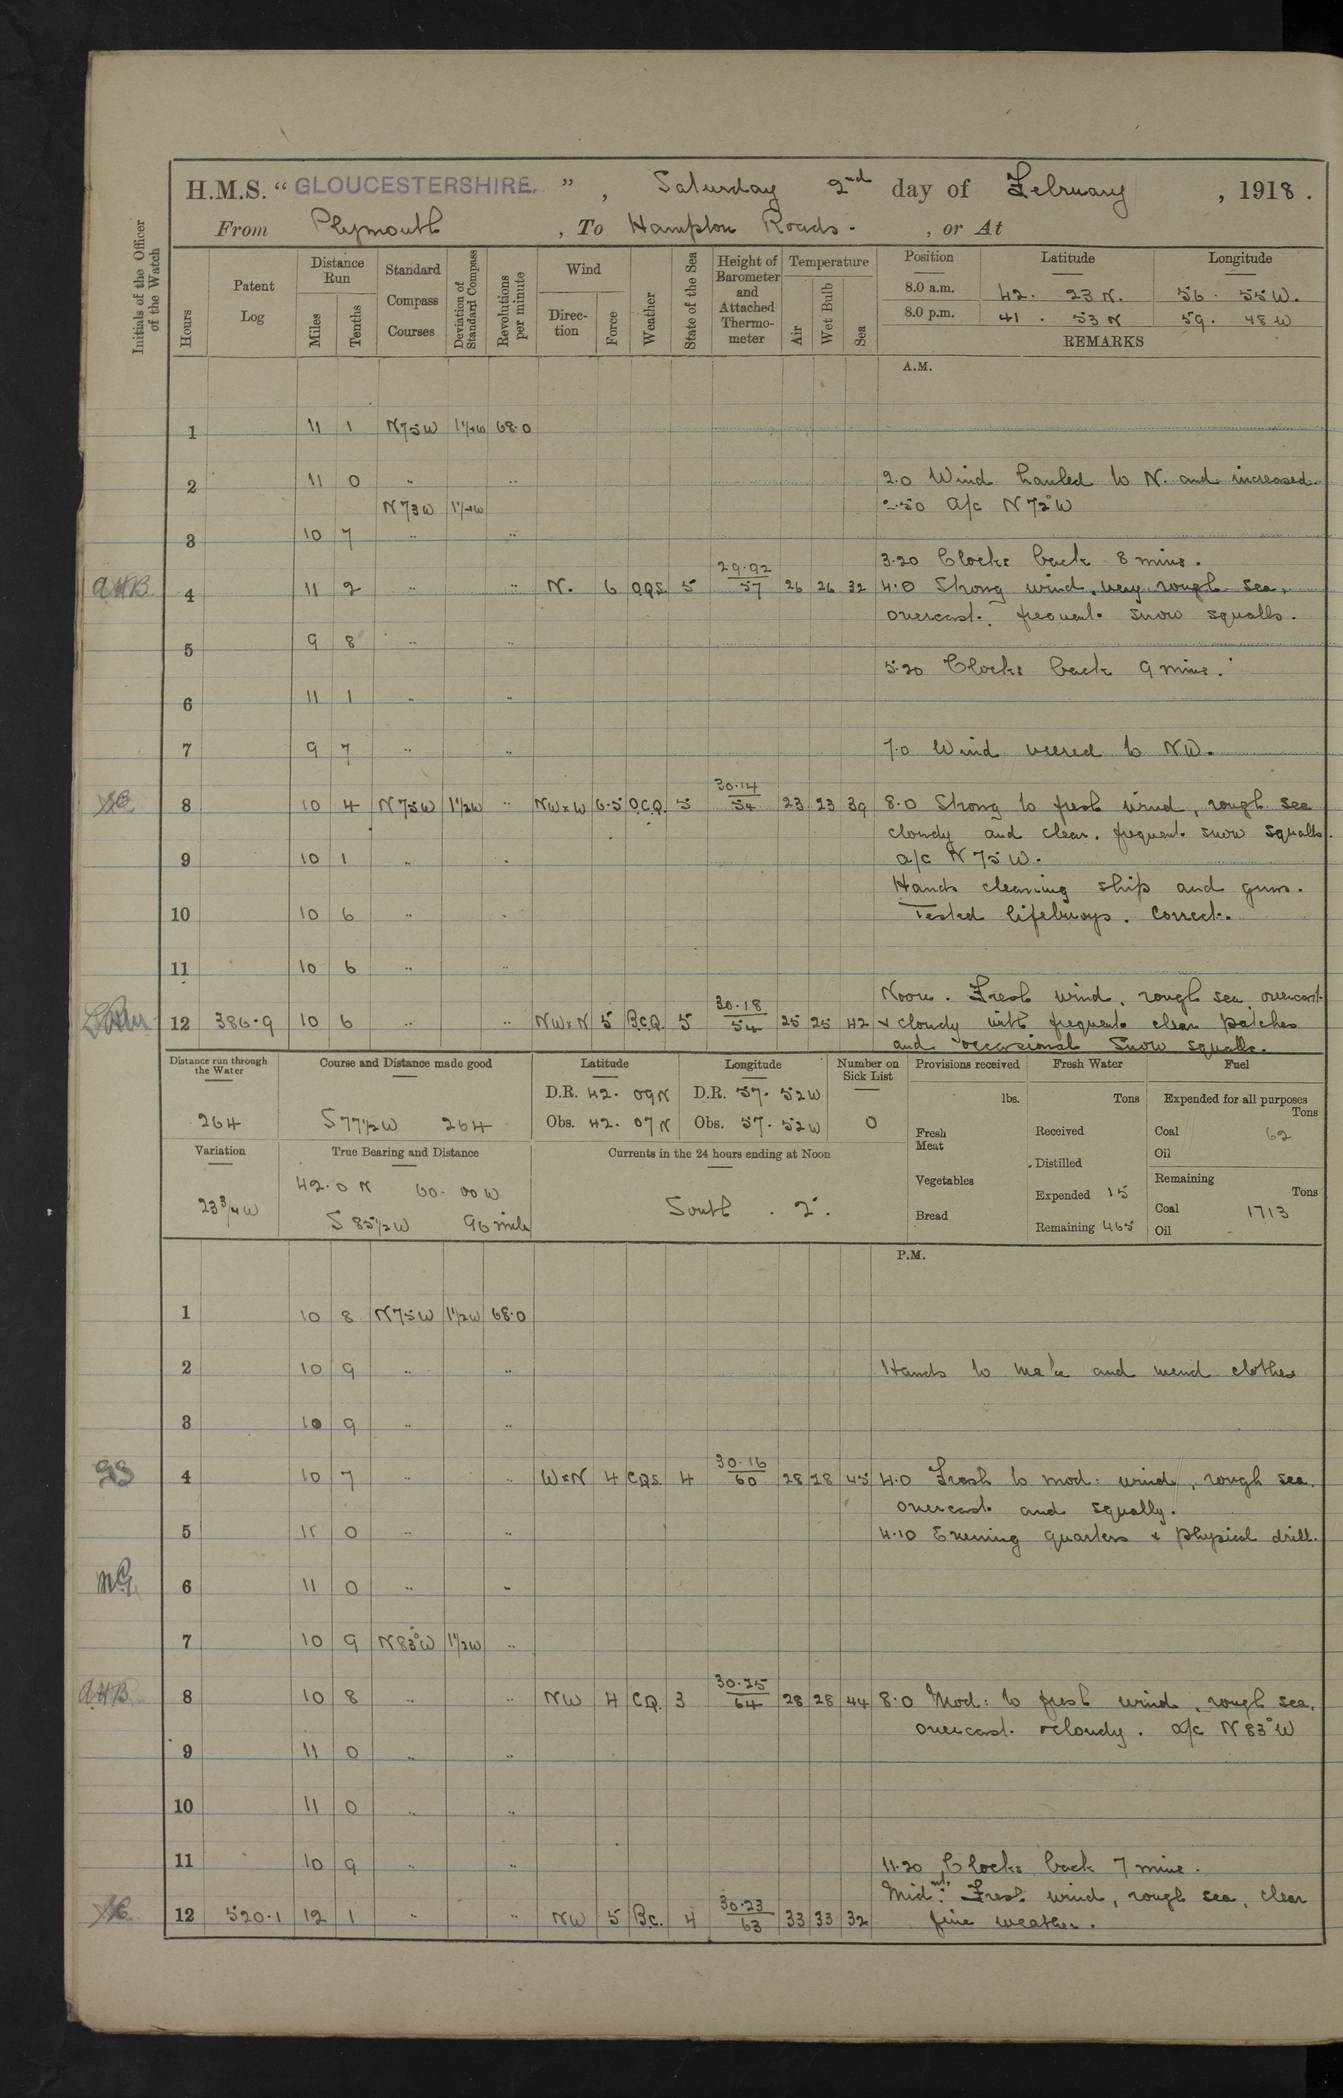 H.M.S. "GLOUCESTERSHIRE.", Saturday 2nd day of February, 1918.
From Plymouth, To Hampton Roads. , or At
Initials of the Officer of the Watch
Hours
Patent Log
Distance Run
Miles
Tenths
Standard Compass Courses
Deviation of Standard Compass
Revolutions per minute
Wind
Direction
Force
Weather
State of the Sea
Height of Barometer and Attached Thermometer
Temperature
Air
Wet Bulb
Sea
Position Latitude Longitude
8.0 a.m. 42. 23 N. 56. 55 W.
8.0 p.m. 41. 53 N 59. 48 W
REMARKS
A.M.
1 11 1 N75W 1¼W 68.0
2 11 0 " " 2.0 Wind hauled to N. and increased.
N73W 1¼W 2.50 a/c N 73°W
3 10 7 " "
3.20 Clocks back 8 mins.
AHB 4 11 2 " " N. 6 O.Q.S. 5 29.92/57 26 26 32 4.0 Strong wind, very rough sea,
overcast. frequent snow squalls.
5 9 8 " "
5.20 Clocks back 9 mins.
6 11 1 " "
7 9 7 " " 7.0 Wind veered to NW.
8 10 4 N75W 1½W " NWxW 6.5 O.C.Q. 5 30.14/54 23 23 39 8.0 Strong to fresh wind, rough sea
cloudy and clear. frequent snow squalls.
9 10 1 " " a/c N 75 W.
Hands cleaning ship and guns.
10 10 6 " " Tested lifebuoys. Correct.
11 10 6 " "
Noon. Fresh wind, rough sea, overcast
12 386.9 10 6 " " NWxN 5 B.C.Q. 5 30.18/54 25 25 42 & cloudy with frequent clear patches
and occasional snow squalls.
Distance run through the Water
264
Course and Distance made good
S 77½W 264
Latitude
D.R. 42. 09 N
Obs. 42. 07 N
Longitude
D.R. 57. 52 W
Obs. 57. 52 W
Number on Sick List
0
Variation
23¾W
True Bearing and Distance
42.0 N 60.00 W
S 85½W 96 miles
Currents in the 24 hours ending at Noon
South . 2'.
Provisions received
lbs.
Fresh Meat
Vegetables
Bread
Fresh Water
Tons
Received
Distilled
Expended 15
Remaining 465
Fuel
Expended for all purposes
Tons
Coal 62
Oil
Remaining
Tons
Coal 1713
Oil
P.M.
1 10 8 N75W 1½W 68.0
2 10 9 " " Hands to make and mend clothes
3 10 9 " "
4 10 7 " " WxN 4 C.Q.S. 4 30.16/60 28 28 45 4.0 Fresh to mod: wind, rough sea.
overcast and squally.
5 11 0 " " 4.10 Evening quarters & physical drill.
6 11 0 " "
7 10 9 N83°W 1½W "
AHB 8 10 8 " " NW 4 C.Q. 3 30.25/64 28 28 44 8.0 Mod: to fresh wind, rough sea,
overcast & cloudy. a/c N 83°W
9 11 0 " "
10 11 0 " "
11 10 9 " " 11.20 Clocks back 7 mins.
Midnt: Fresh wind, rough sea, clear
12 520.1 12 1 " " NW 5 B.c. 4 30.23/63 33 33 32 fine weather.